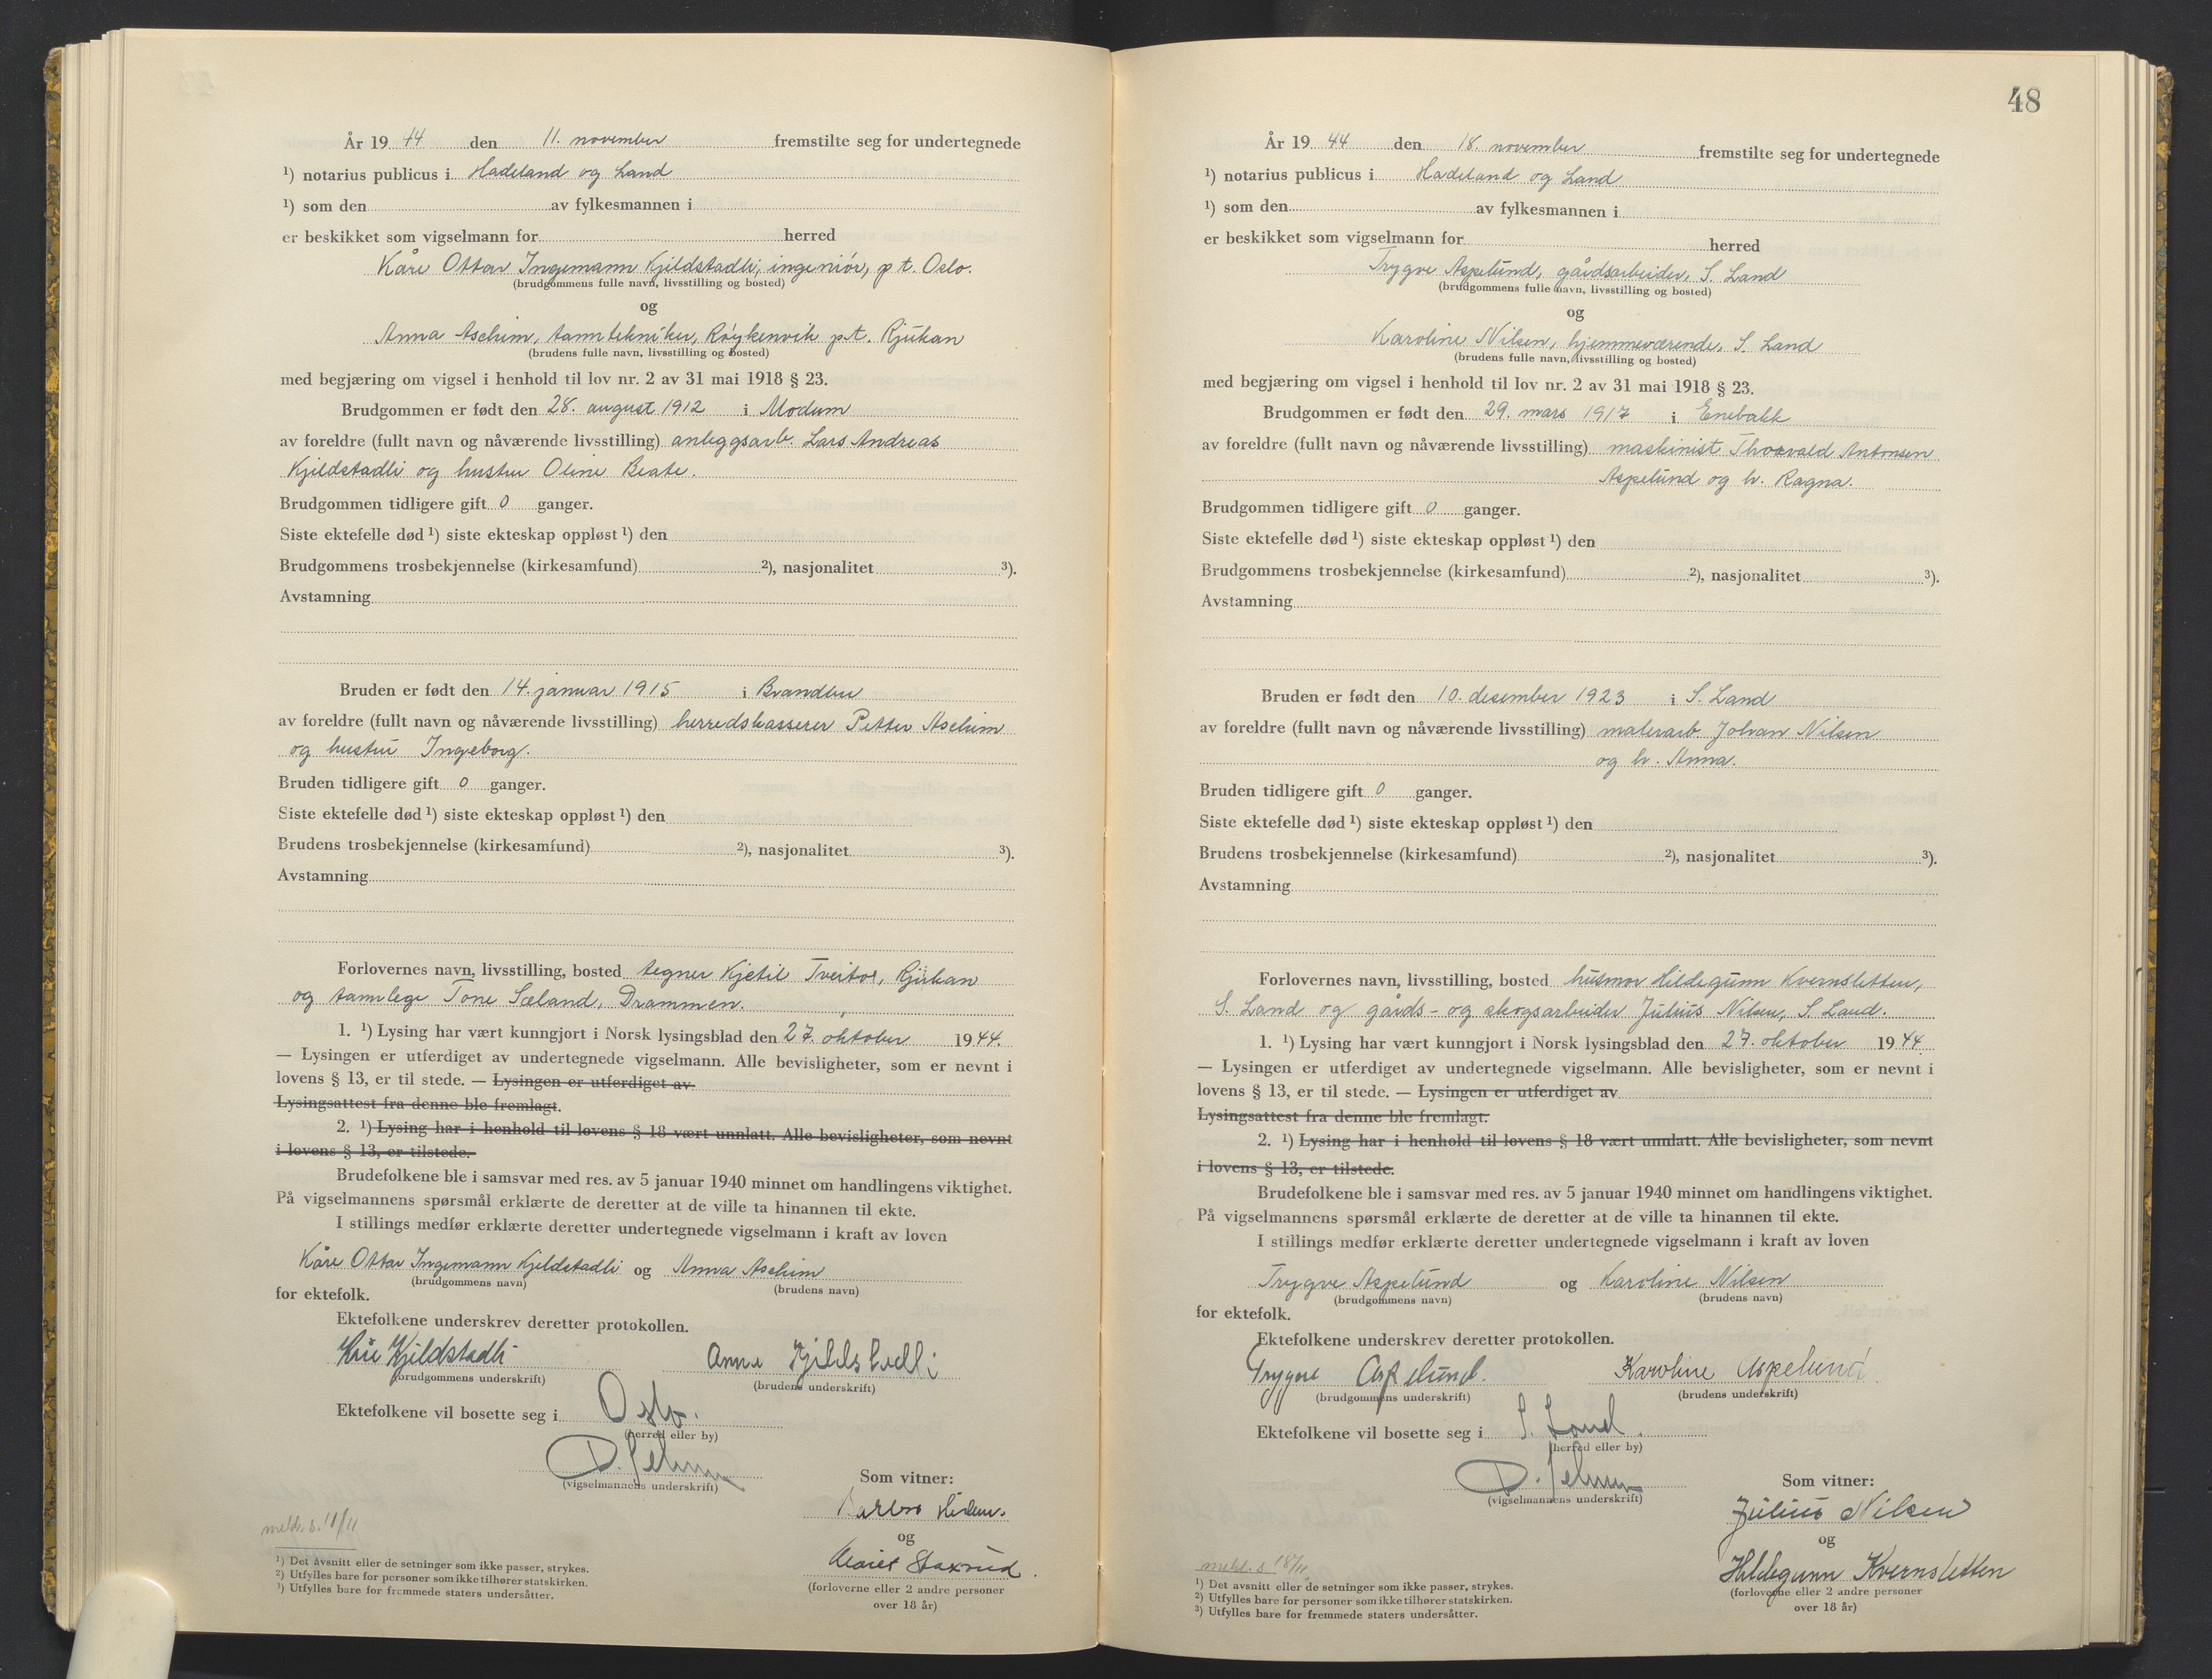 År 19 44 den 11. november fremstilte seg for undertegnede
¹) notarius publicus i Hadeland og Land
¹) som den av fylkesmannen i
er beskikket som vigselmann for herred
Kåre Ottar Ingemann Kjildstadli, ingeniór, p t. Oslo.
(brudgommens fulle navn, livsstilling og bosted)
og
Anna Aschim, tanntekniker, Røykenvik p.t. Rjukan
(brudens fulle navn, livsstilling og bosted)
med begjæring om vigsel i henhold til lov nr. 2 av 31 mai 1918 § 23.
Brudgommen er født den 28. august 1912 i Modum
av foreldre (fullt navn og nåværende livsstilling) anleggsarb. Lars Andreas
Kjildstadli og hustru Oline Beate.
Brudgommen tidligere gift 0 ganger.
Siste ektefelle død ¹) siste ekteskap oppløst ¹) den
Brudgommens trosbekjennelse (kirkesamfund) ²), nasjonalitet ³).
Avstamning
Bruden er født den 14. januar 1915 i Brandbu
av foreldre (fullt navn og nåværende livsstilling) herredskasserer Petter Aschim
og hustru Ingeborg.
Bruden tidligere gift 0 ganger.
Siste ektefelle død ¹) siste ekteskap oppløst ¹) den
Brudens trosbekjennelse (kirkesamfund) ²), nasjonalitet ³).
Avstamning
Forlovernes navn, livsstilling, bosted tegner Kjetil Tveitor, Rjukan
og tannlege Tone Sæland, Drammen.
1. ¹) Lysing har vært kunngjort i Norsk lysingsblad den 27. oktober 19 44.
— Lysingen er utferdiget av undertegnede vigselmann. Alle bevisligheter, som er nevnt i
lovens § 13, er til stede. — Lysingen er utferdiget av
Lysingsattest fra denne ble fremlagt.
2. ¹) Lysing har i henhold til lovens § 18 vært unnlatt. Alle bevisligheter, som nevnt
i lovens § 13, er tilstede.
Brudefolkene ble i samsvar med res. av 5 januar 1940 minnet om handlingens viktighet.
På vigselmannens spørsmål erklærte de deretter at de ville ta hinannen til ekte.
I stillings medfør erklærte deretter undertegnede vigselmann i kraft av loven
Kåre Ottar Ingemann Kjeldstadli og Anna Aschim
(brudgommens navn) (brudens navn)
for ektefolk.
Ektefolkene underskrev deretter protokollen.
Kåre Kjildstadli Anna Kjildstadli
(brudgommens underskrift) (brudens underskrift)
Ektefolkene vil bosette seg i Oslo.
(herred eller by)
(vigselmannens underskrift)
Som vitner:
og
Staxrud
(forloverne eller 2 andre personer
over 18 år)
meld. s. 11/11
¹) Det avsnitt eller de setninger som ikke passer, strykes.
²) Utfylles bare for personer som ikke tilhører statskirken.
³) Utfylles bare for fremmede staters undersåtter.
48
År 19 44 den 18. november fremstilte seg for undertegnede
¹) notarius publicus i Hadeland og Land
¹) som den av fylkesmannen i
er beskikket som vigselmann for herred
Trygve Aspelund, gårdsarbeider, S. Land
(brudgommens fulle navn, livsstilling og bosted)
og
Karoline Nilsen, hjemmeværende, S. Land
(brudens fulle navn, livsstilling og bosted)
med begjæring om vigsel i henhold til lov nr. 2 av 31 mai 1918 § 23.
Brudgommen er født den 29. mars 1917 i Enebakk
av foreldre (fullt navn og nåværende livsstilling) maskinist Thorvald Antonsen
Aspelund og h. Ragna.
Brudgommen tidligere gift 0 ganger.
Siste ektefelle død ¹) siste ekteskap oppløst ¹) den
Brudgommens trosbekjennelse (kirkesamfund) ²), nasjonalitet ³).
Avstamning
Bruden er født den 10. desember 1923 i S. Land
av foreldre (fullt navn og nåværende livsstilling) malerarb. Johan Nilsen
og h. Anna.
Bruden tidligere gift 0 ganger.
Siste ektefelle død ¹) siste ekteskap oppløst ¹) den
Brudens trosbekjennelse (kirkesamfund) ²), nasjonalitet ³).
Avstamning
Forlovernes navn, livsstilling, bosted husmor Hildegunn Kvernsletten,
S. Land og gårds- og skogsarbeider Julius Nilsen, S. Land.
1. ¹) Lysing har vært kunngjort i Norsk lysingsblad den 27. oktober 19 44
— Lysingen er utferdiget av undertegnede vigselmann. Alle bevisligheter, som er nevnt i
lovens § 13, er til stede. — Lysingen er utferdiget av
Lysingsattest fra denne ble fremlagt.
2. ¹) Lysing har i henhold til lovens § 18 vært unnlatt. Alle bevisligheter, som nevnt
i lovens § 13, er tilstede.
Brudefolkene ble i samsvar med res. av 5 januar 1940 minnet om handlingens viktighet.
På vigselmannens spørsmål erklærte de deretter at de ville ta hinannen til ekte.
I stillings medfør erklærte deretter undertegnede vigselmann i kraft av loven
Trygve Aspelund og Karoline Nilsen
(brudgommens navn) (brudens navn)
for ektefolk.
Ektefolkene underskrev deretter protokollen.
Trygve Aspelund. Karoline Aspelund.
(brudgommens underskrift) (brudens underskrift)
Ektefolkene vil bosette seg i S. Land.
(herred eller by)
(vigselmannens underskrift)
Som vitner:
Julius Nilsen
og
Hildegunn Kvernsletten
(forloverne eller 2 andre personer
over 18 år)
meld. s 18/11
¹) Det avsnitt eller de setninger som ikke passer, strykes.
²) Utfylles bare for personer som ikke tilhører statskirken.
³) Utfylles bare for fremmede staters undersåtter.